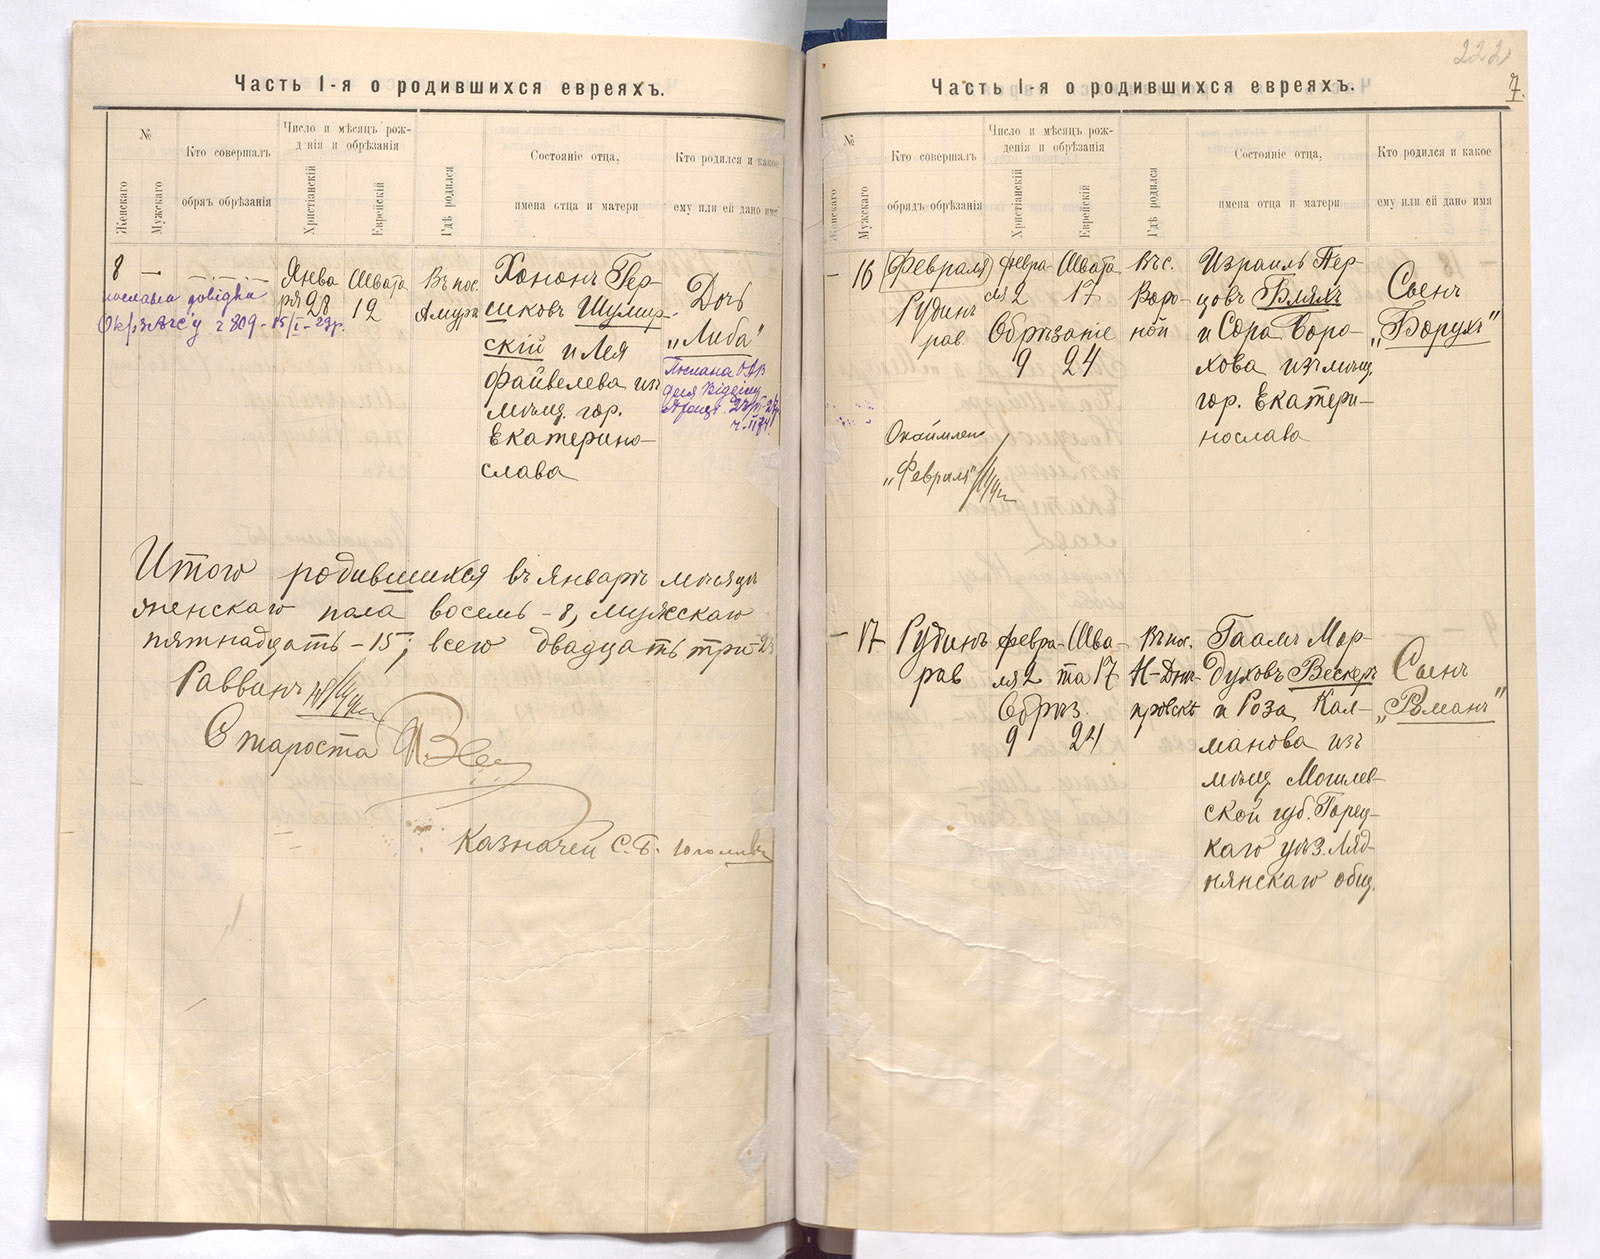 Часть 1-я о родившихся евреяхъ.
№
Женскаго
Мужскаго
Кто совершалъ
обрядъ обрѣзанія
Число и мѣсяцъ рож-
денія и обрѣзанія
Христіанскій
Еврейскій
Гдѣ родился
Состояніе отца,
имена отца и матери
Кто родился и какое
ему или ей дано имя
8
—
Янва
ря 28
Швата
12
Въ пос.
Амуръ
Хононъ Гер-
шковъ Шумир-
скій и Лея
Файвелева изъ
мѣщ. гор.
Екатерино-
слава
Дочь
„Либа"
Итого родившихся въ Январѣ мѣсяцѣ
женскаго пола восемь - 8, мужскаго
пятнадцать - 15; всего двадцать три - 23
Раввинъ
Староста
Казначей С. Б.
222
7.
Часть 1-я о родившихся евреяхъ.
№
Женскаго
Мужскаго
Кто совершалъ
обрядъ обрѣзанія
Число и мѣсяцъ рож-
денія и обрѣзанія
Христіанскій
Еврейскій
Гдѣ родился
Состояніе отца,
имена отца и матери
Кто родился и какое
ему или ей дано имя
—
16
(Февраля)
Рудинъ
рав.
Февра-
ля 2
Обрѣзаніе
9
Швата
17
24
Въ с.
Воро-
ной
Израиль Пер-
цовъ Бляхъ
и Сора Боро-
хова изъ мѣщ.
гор. Екатери-
нослава
Сынъ
„Борухъ"
Окаймлено
„Февраля"
—
17
Рудинъ
рав
Февра-
ля 2
Обрѣз.
9
Шва-
та 17
24
Въ пос.
Н-Днѣ-
провскъ
Гаамъ Мор-
духовъ Вескеръ
и Роза Кал-
манова изъ
мѣщ. Могилев-
ской губ. Горец-
каго уѣз. Ляд-
нянскаго общ.
Сынъ
„Романъ"